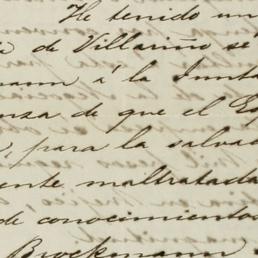 He tenido un
de Villariño se
mann á la Junta
nsa de que el Es
para la salva
ente maltratada
de conocimientos
Brockmann